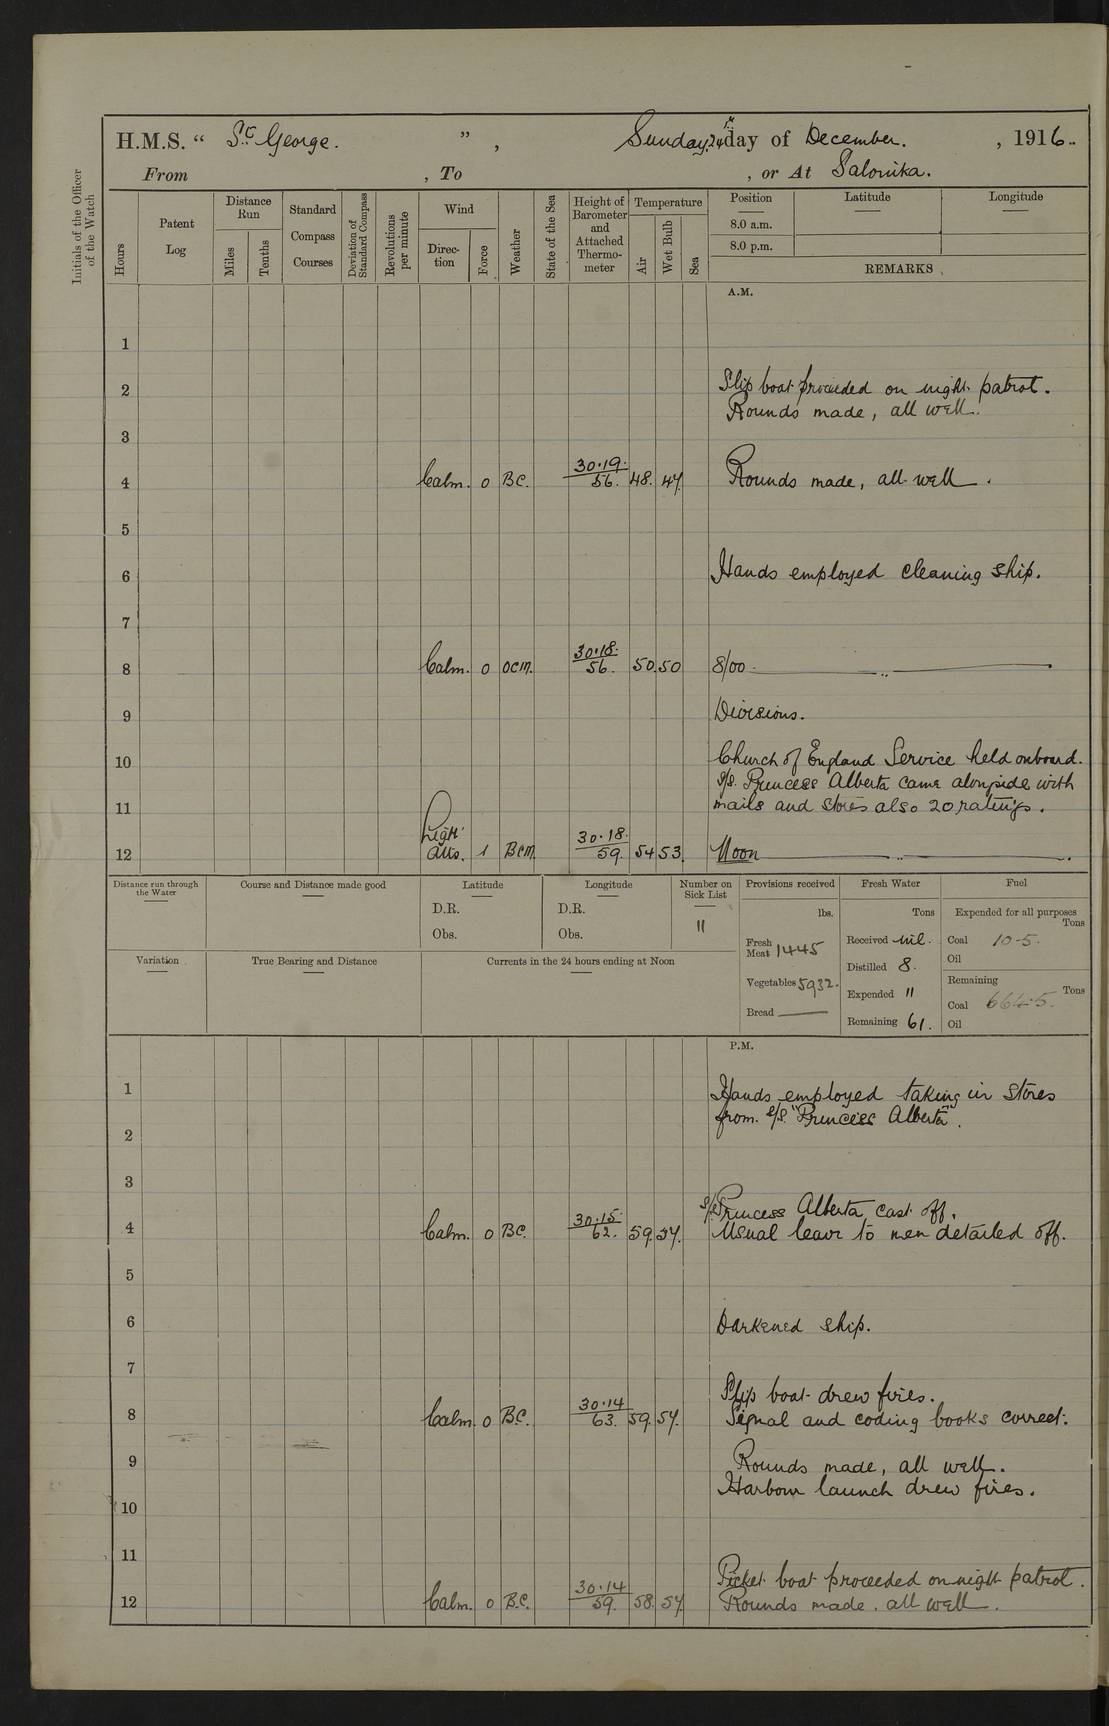 H.M.S. “ St. George. ” , Sunday, 24th day of December. , 1916..
From , To , or At Salonika.
Initials of the Officer of the Watch
Hours
Patent Log
Distance Run
Miles
Tenths
Standard Compass Courses
Deviation of Standard Compass
Revolutions per minute
Wind
Direc- tion
Force
Weather
State of the Sea
Height of Barometer and Attached Thermo- meter
Temperature
Air
Wet Bulb
Sea
Position Latitude Longitude
8.0 a.m.
8.0 p.m.
REMARKS
A.M.
1
2 Slip boat proceeded on night patrol.
Rounds made, all well.
3
4 Calm. 0 B.C. 30.19. 56. 48. 47. Rounds made, all well.
5
6 Hands employed cleaning ship.
7
8 Calm. 0 OCM. 30.18. 56. 50. 50 8/00 „
9 Divisions.
10 Church of England Service held onboard.
S/S. Princess Alberta came alongside with
11 mails and stores also 20 ratings.
12 Light airs. 1 BCM. 30.18. 59. 54 53. Noon „
Distance run through the Water
Course and Distance made good
Latitude
D.R.
Obs.
Longitude
D.R.
Obs.
Number on Sick List
11
Provisions received
lbs.
Fresh Meat 1445
Vegetables 5932.
Bread —
Fresh Water
Tons
Received nil.
Distilled 8.
Expended 11
Remaining 61.
Fuel
Expended for all purposes
Tons
Coal 10.5.
Oil
Remaining
Tons
Coal 664.5.
Oil
Variation
True Bearing and Distance
Currents in the 24 hours ending at Noon
P.M.
1 Hands employed taking in stores
from S/S. "Princess Alberta".
2
3
S/S. Princess Alberta cast off.
4 Calm. 0 B.C. 30.15. 62. 59. 57. Usual leave to men detailed off.
5
6 Darkened ship.
7
Slip boat drew fires.
8 Calm. 0 B.C. 30.14 63. 59. 57. Signal and coding books correct.
9 Rounds made, all well.
Harbour launch drew fires.
10
11
Picket boat proceeded on night patrol.
12 Calm. 0 B.C. 30.14 59. 58. 57. Rounds made. all well.